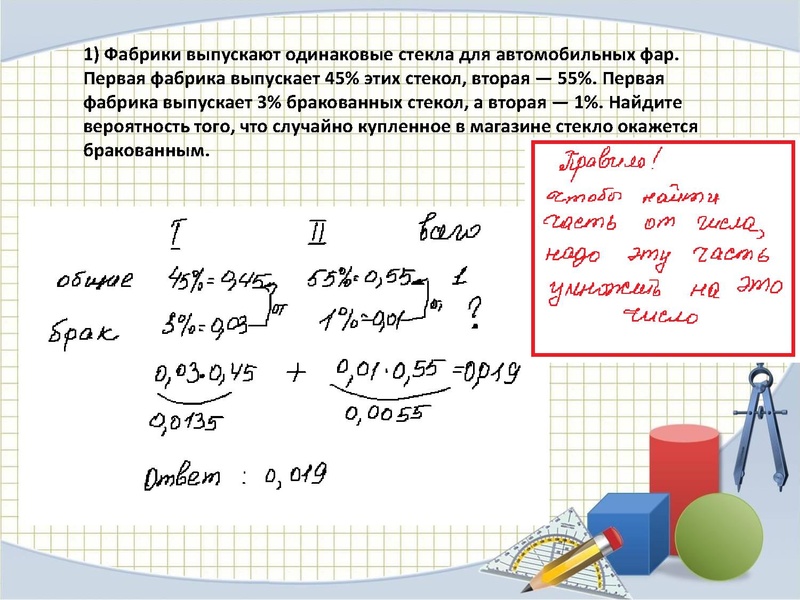 1) Фабрики выпускают одинаковые стекла для автомобильных фар.
Первая фабрика выпускает 45% этих стекол, вторая — 55%. Первая
фабрика выпускает 3% бракованных стекол, а вторая — 1%. Найдите
вероятность того, что случайно купленное в магазине стекло окажется
бракованным.
Правило!
чтобы найти
часть от числа,
надо эту часть
умножить на это
число
I II всего
общие 45%=0,45 55%=0,55 1
от от
брак 3%=0,03 1%=0,01 ?
0,03·0,45 + 0,01·0,55=0,019
0,0135 0,0055
Ответ : 0,019